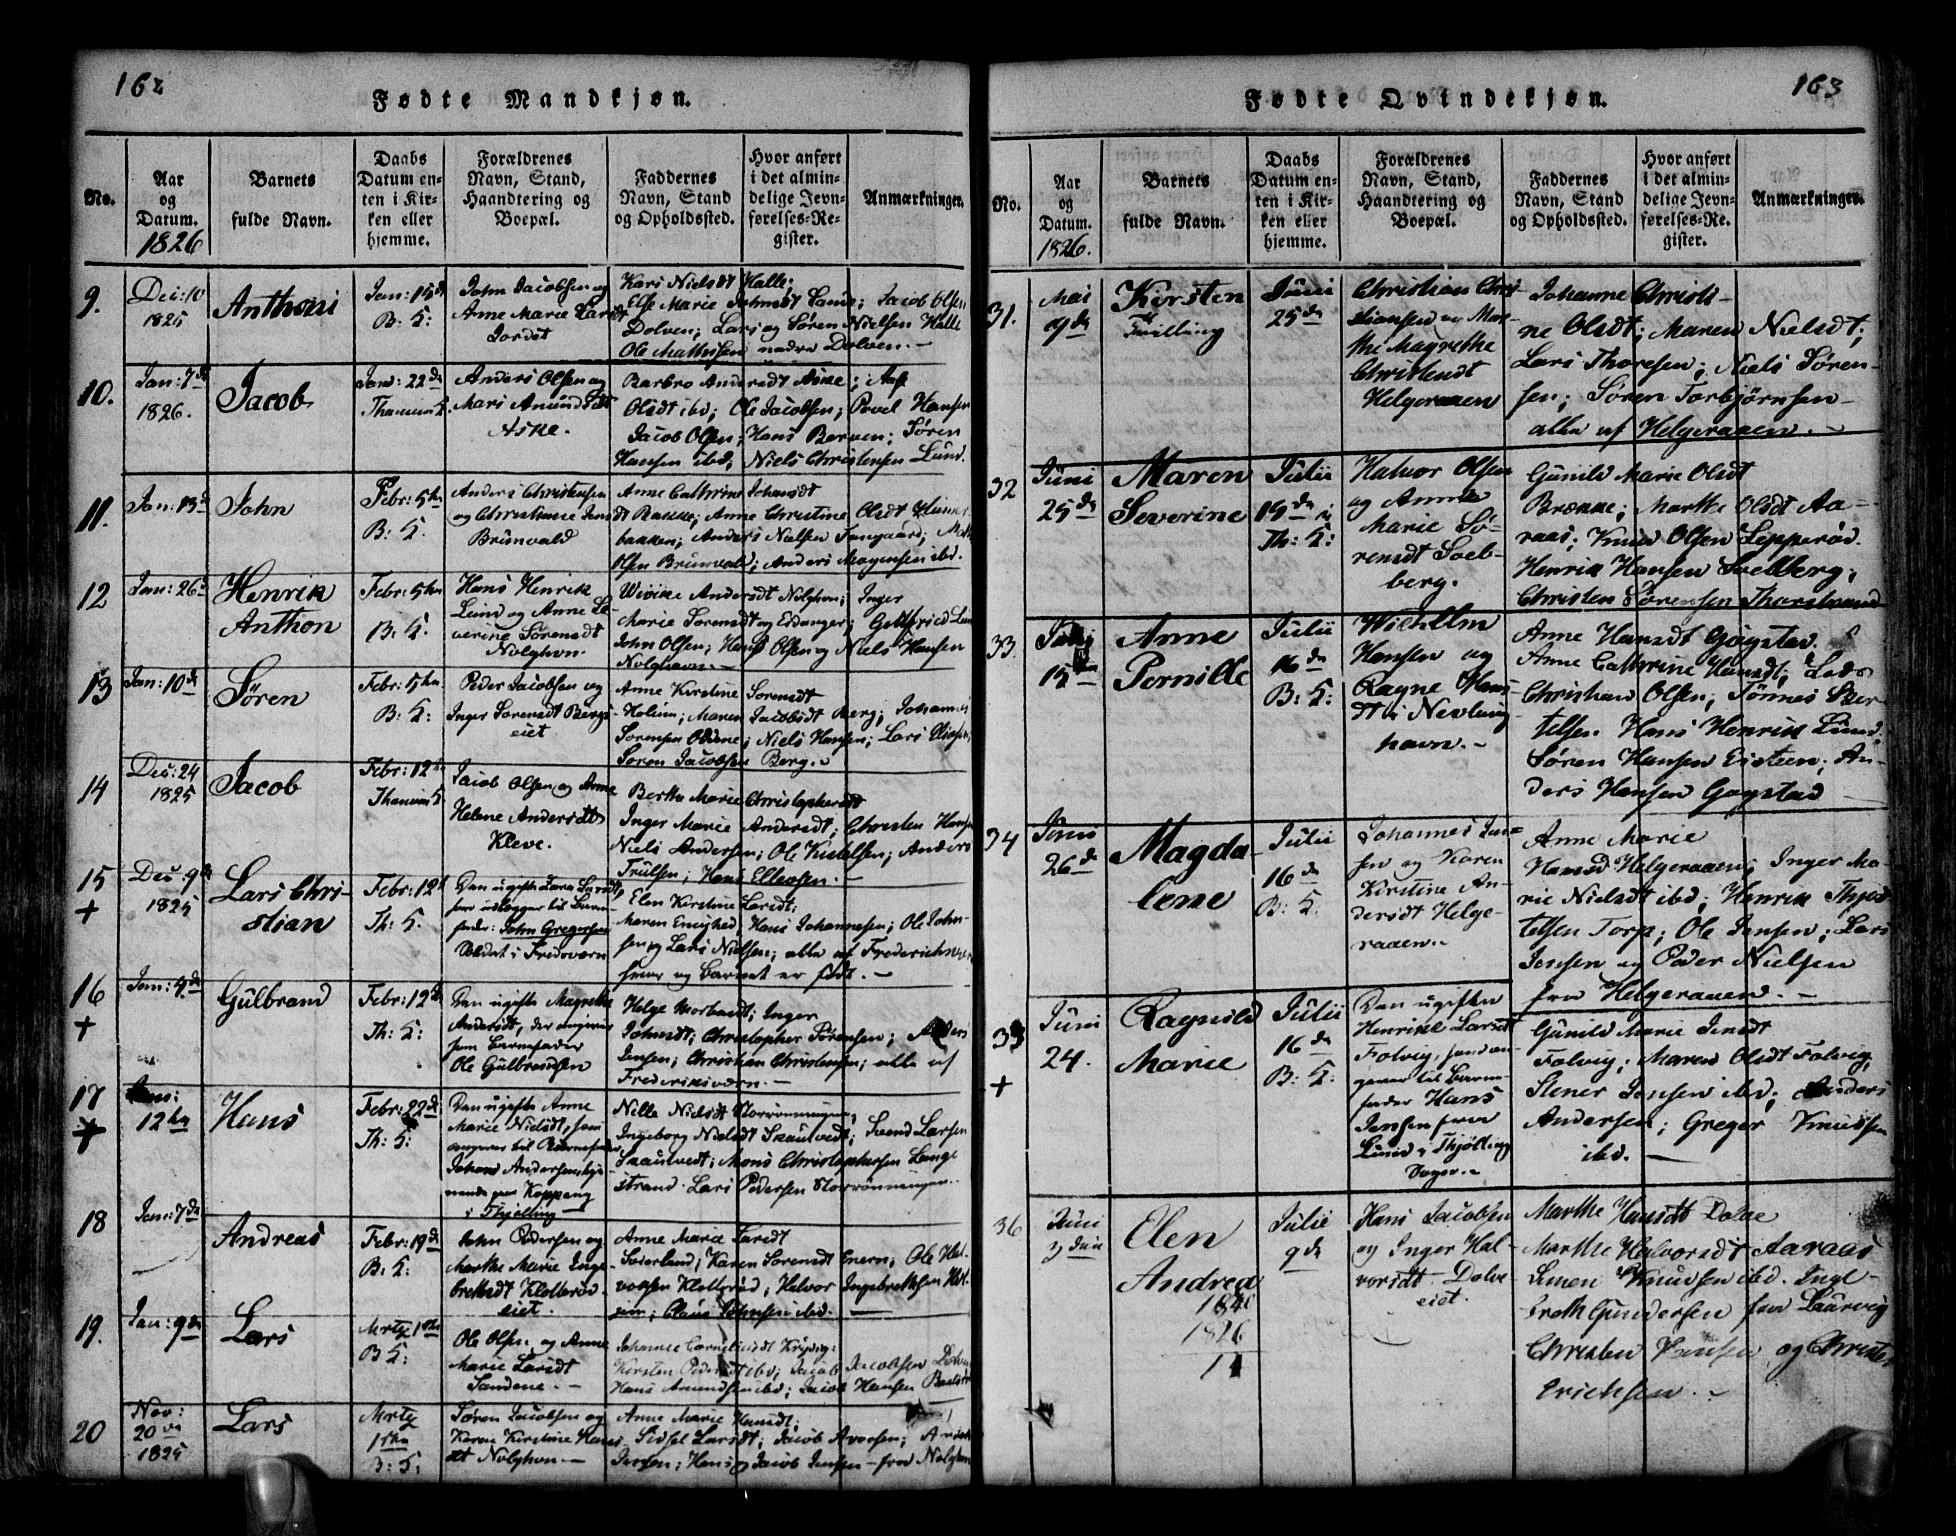 162
Fødte Mandkjøn.
No.
Aar
og
Datum.
1826
Barnets
fulde Navn.
Daabs
Datum en-
ten i Kir-
ken eller
hjemme.
Forældrenes
Navn, Stand,
Haandtering og
Boepæl.
Faddernes
Navn, Stand
og Opholdssted.
Hvor anført
i det almin-
delige Jevn-
førelses-Re-
gister.
Anmærkninger.
9.
Dec: 10
1825
Anthoni
Jan: 15de
B: K:
John Jacobsen og
Anne Marie Larsdt
Jordet
Kari Nielsdt Halle;
Else Marie Johnsdt Sande; Jacob Olsen
Dolven; Lars og Søren Nielsen Halle
Ole Mathisen nedre Dolven.
10.
Jan: 7de
1826.
Jacob
Jan: 22de
Thanum K
Anders Olsen og
Mari Amundsdt
Aske.
Barbro Andersdt Aske;
Olsdt ibd; Ole Jacobsen; Povel Hansen
Jacob Olsen; Hans Berven; Søren
Hansen ibd; Niels Christensen Lund.
11.
Jan: 13de
John
Febr: 5te
B: K:
Anders Christensen
og Christiane Jens
dt Brunvald
Anne Cathrine Johansdt
Bakke; Anne Christine Olsdt
bakken; Anders Nielsen Fangaard;
Olsen Brunvald; Anders Mogensen ibd.
12
Jan: 26
Henrik
Anthon
Febr: 5te
B: K:
Hans Henrik
Lund og Anne Se
verine Sørensdt
Nolghvn.
Wivike Andersdt Nolghvn; Inger
Marie Sørensdt og Eidanger; Gottfried Lun
John Olsen; Hans Olsen og Niels Hansen
Nolghavn.
13
Jan: 10de
Søren
Febr: 5te
B: K:
Peder Jacobsen og
Inger Sørensdt Bergs
eiet
Anne Kirstine Sørensdt
Holum; Maren Jacobsdt Berg; Johannes
Sørensen Odene; Niels Hansen; Lars Eliasen;
Søren Jacobsen Berg.
14
Dec: 24
1825
Jacob
Febr: 12te
Thanum K
Jacob Olsen og Anne
Helene Andersdt
Kleve.
Berthe Marie Christophersdt
Inger Marie Andersdt; Christen Hansen
Niels Andersen; Ole Kittelsen; Anders
Trulsen; Hans Ellevsen.
15
+
Dec: 9de
1825
Lars Chri-
stian
Febr: 12te
Th: K.
Den ugifte Lars Larsdt
som udlægger til Barne
fader: John Gregersen
Elen Kirstine Larsdt;
Maren Enighed; Hans Johannesen; Ole John-
sen og Lars Nielsen; alle af Frederichsværn
hvor og Barnet er født.
16
+
Jan: 4de
Gulbrand
Febr: 12te
Th: K:
Den ugifte Magrethe
Andersdt, der angiver
som Barnefader
Ole Gulbrandsen
Helge Morbandt; Inger
Johnsdt; Christopher Sørensen; Anders
Jensen; Christian Christensen; alle af
Frederiksværn.
17
+
Jan:
12te
Hans
Febr: 22de
Th: K:
Den ugifte Anne
Marie Nielsdt, som
angiver til Barnefader
Johan Andersen
Koppang
i Thjølling
Nille Nielsdt Storrønningen;
Ingeborg Nielsdt Skautvedt; Svend Larsen
Skautvedt; Mons Christophersen Lange
strand. Lars Pedersen Storrønningen.
18
Jan: 7de
Andreas
Febr: 19de
B: K:
John Pedersen og
Marthe Marie Inge
bretsdt Klotterød
eiet.
Anne Marie Larsdt
Søierland; Karen Sørensdt Enern; Ole Hal-
vorsen Klotterød; Halvor Ingebretsen Hol-
; Claus Johnsen ibd.
19.
Jan: 9de
Lars
Mrtz 1te
B K:
Ole Olsen og Anne
Marie Larsdt
Sandene.
Johanne Corneliusdt
Kirsten Pedersdt ibd; Jacob Jacobsen Dolven
Hans Amundsen ibd; Jacob Hansen
20
Nov:
20de
1825
Lars
Mrtz
1te
B: K:
Søren Jacobsen og
Karen Kirstine Hans
dt Nolghvn.
Anne Marie Hansdt;
Sidsel Larsdt; Jacob Avorsen;
Iversen; Hans og Jacob Jensen fra Nolghvn
163
Fødte Qvindekjøn.
No.
Aar
og
Datum.
1826.
Barnets
fulde Navn.
Daabs
Datum en-
ten i Kir-
ken eller
hjemme.
Forældrenes
Navn, Stand,
Haandtering og
Boepæl.
Faddernes
Navn, Stand
og Opholdssted.
Hvor anført
i det almin-
delige Jevn-
førelses-Re-
gister.
Anmærkninger.
31.
Mai
9de
Kirsten
Tvilling
Juni
25de
Christian Chri-
stiansen og Mar-
the Magrethe
Christensdt
Helgeraaen
Johanne Christi-
ne Olsdt; Maren Nielsdt;
Lars Thoresen; Niels Søren-
sen; Søren Torbjørnsen
alle af Helgeraaen.
32
Juni
25de
Maren
Severine
Julii
15de i
Th: K:
Halvor Olsen
og Anne
Marie Sø-
rensdt Soel-
berg.
Gunild Marie Olsdt
Brekke; Marthe Olsdt Aa-
raas; Knud Olsen Lepperød.
Henrik Hansen Soelberg;
Christen Sørensen Thorstrand
33.
Juni
15de
Anne
Pernille
Julii
16de
B: K:
Wilhelm
Hansen og
Ragne Hans
dt i Nevlung
havn.
Anne Hansdt Gogstad.
Anne Cathrine Hansdt;
Christian Olsen, Tønnes Ber
telsen Hans Henrik Lund;
Søren Hansen Eisteen; An-
ders Hansen Gogstad
34
Juni
26de
Magda-
lene
Julii
16de
B: K.
Johannes Jen-
sen og Karen
Kirstine An-
dersdt Helge-
raaen.
Anne Marie
Hansd Helgeraaen; Inger Ma-
rie Nielsdt ibd; Henrik Thjod
telsen Torp; Ole Jensen; Lars
Jensen og Peder Nielsen
fra Helgeraaen.
35
+
Juni
24.
Ragnild
Marie
Julii
16de
B: K:
Den ugifte
Henrikke Larsdt
Folvig, som an-
giver til Barne
fader Hans
Jensen fra
Lund i Thjølling
Sogn.
Gunild Marie Jensdt
Folvig; Maren Olsdt Folvig;
Stener Jensen ibd; Anders
Andersen; Greger Knudsen
ibd.
36
Juni
Elen
Andrea
1840
1826
14
Julie
9de
Hans Jacobsen
og Inger Hal-
vorsdt Dolve
eiet.
Marthe Hansdt Dolve
Marthe Halvorsdt Aaraas
Simen Knudsen ibd. Inge-
breth Gundersen fra Laurvig
Christen Hansen og Christen
Erichsen.